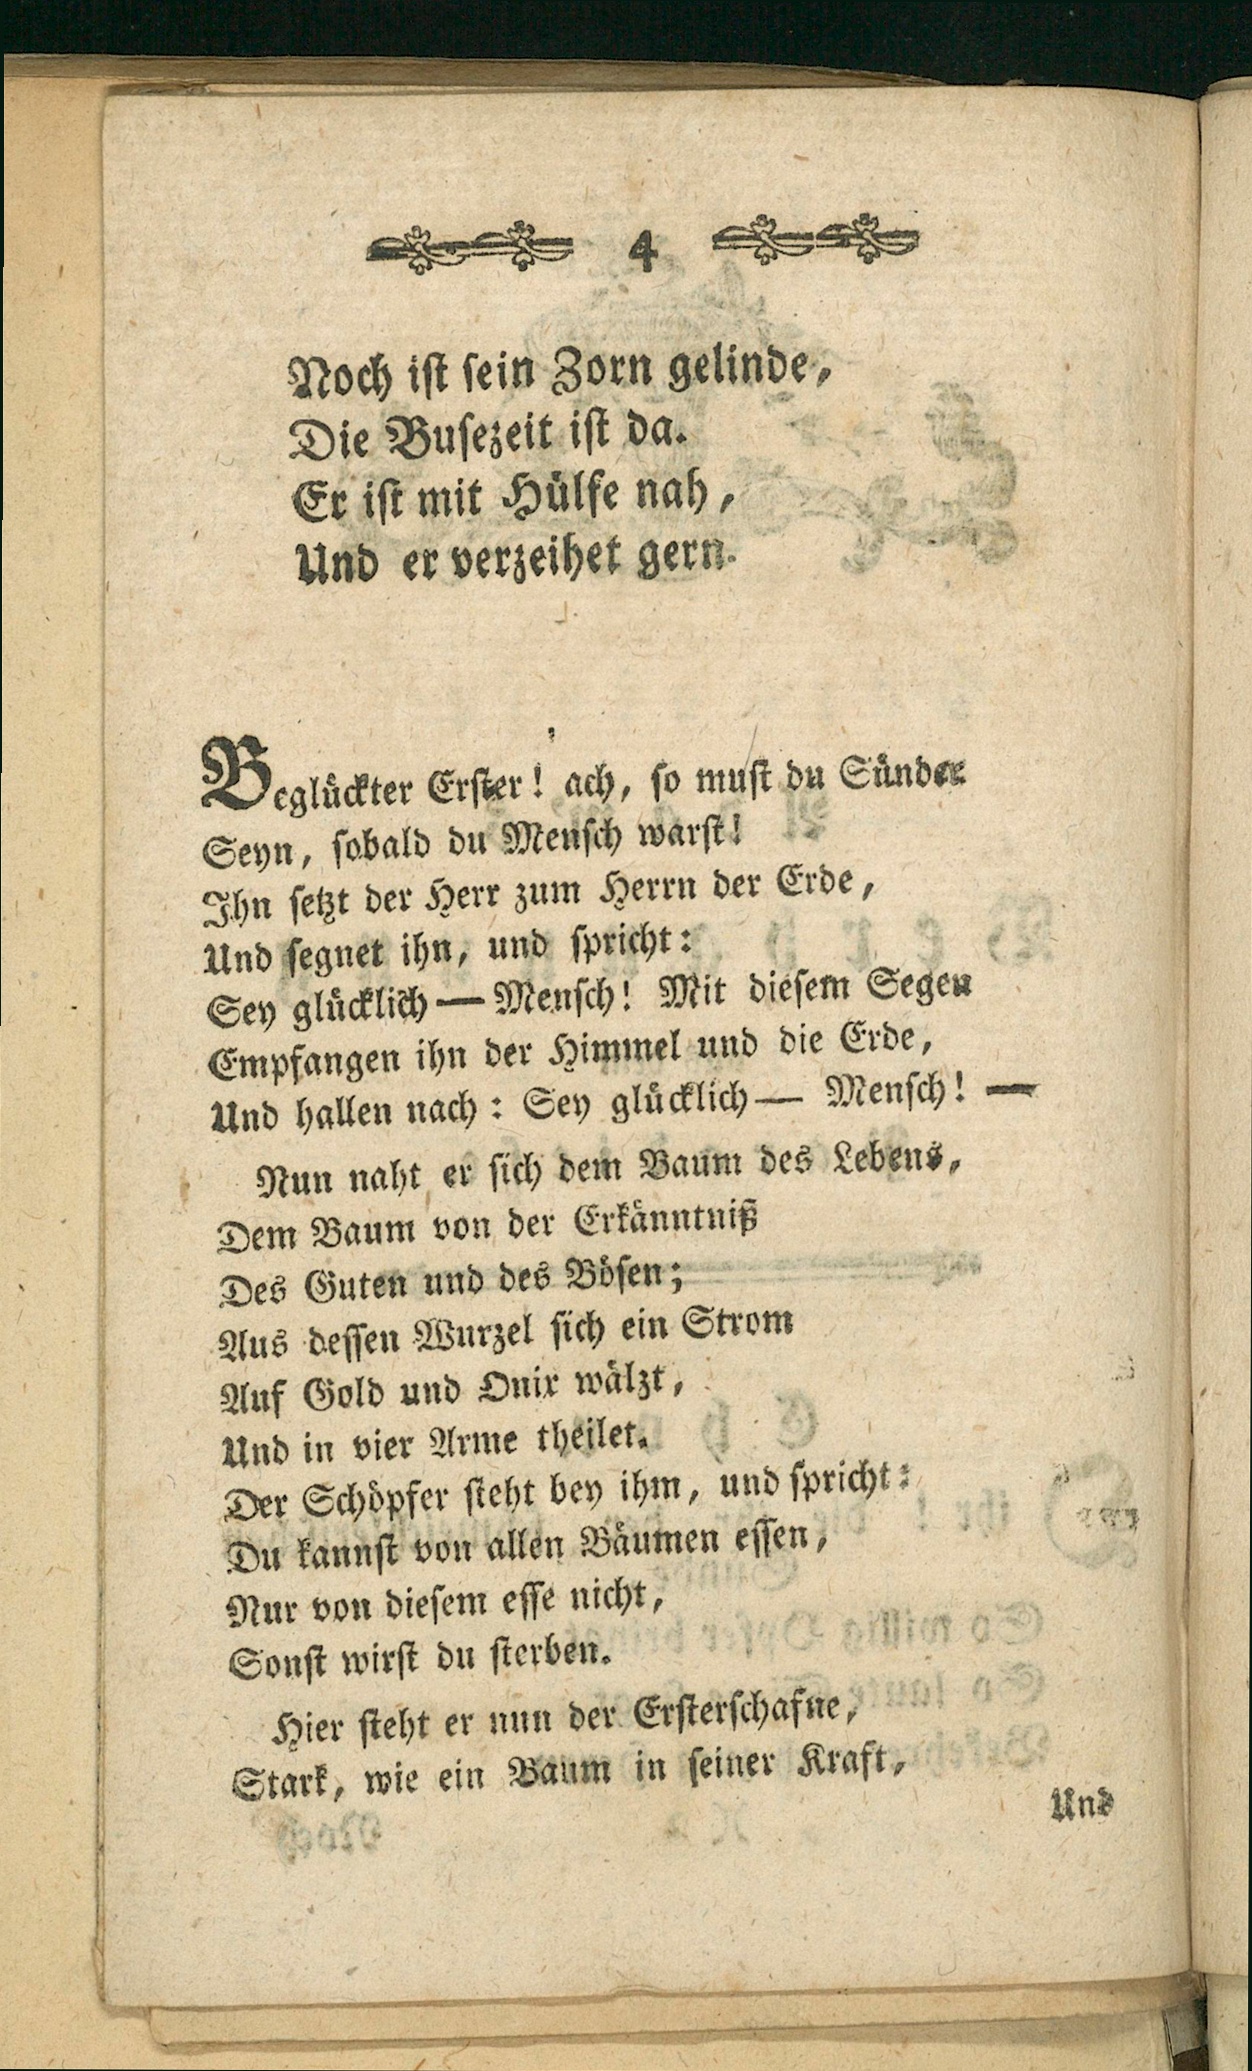 4
Noch ist sein Zorn gelinde,
Die Busezeit ist da.
Er ist mit Hülfe nah,
Und er verzeihet gern.
Beglückter Erster! ach, so must du Sünder
Seyn, sobald du Mensch warst!
Ihn setzt der Herr zum Herrn der Erde,
Und segnet ihn, und spricht:
Sey glücklich — Mensch! Mit diesem Segen
Empfangen ihn der Himmel und die Erde,
Und hallen nach: Sey glücklich — Mensch! —
Nun naht er sich dem Baum des Lebens,
Dem Baum von der Erkänntniß
Des Guten und des Bösen;
Aus dessen Wurzel sich ein Strom
Auf Gold und Onix wälzt,
Und in vier Arme theilet.
Der Schöpfer steht bey ihm, und spricht:
Du kannst von allen Bäumen essen,
Nur von diesem esse nicht,
Sonst wirst du sterben.
Hier steht er nun der Ersterschafne,
Stark, wie ein Baum in seiner Kraft,
Und